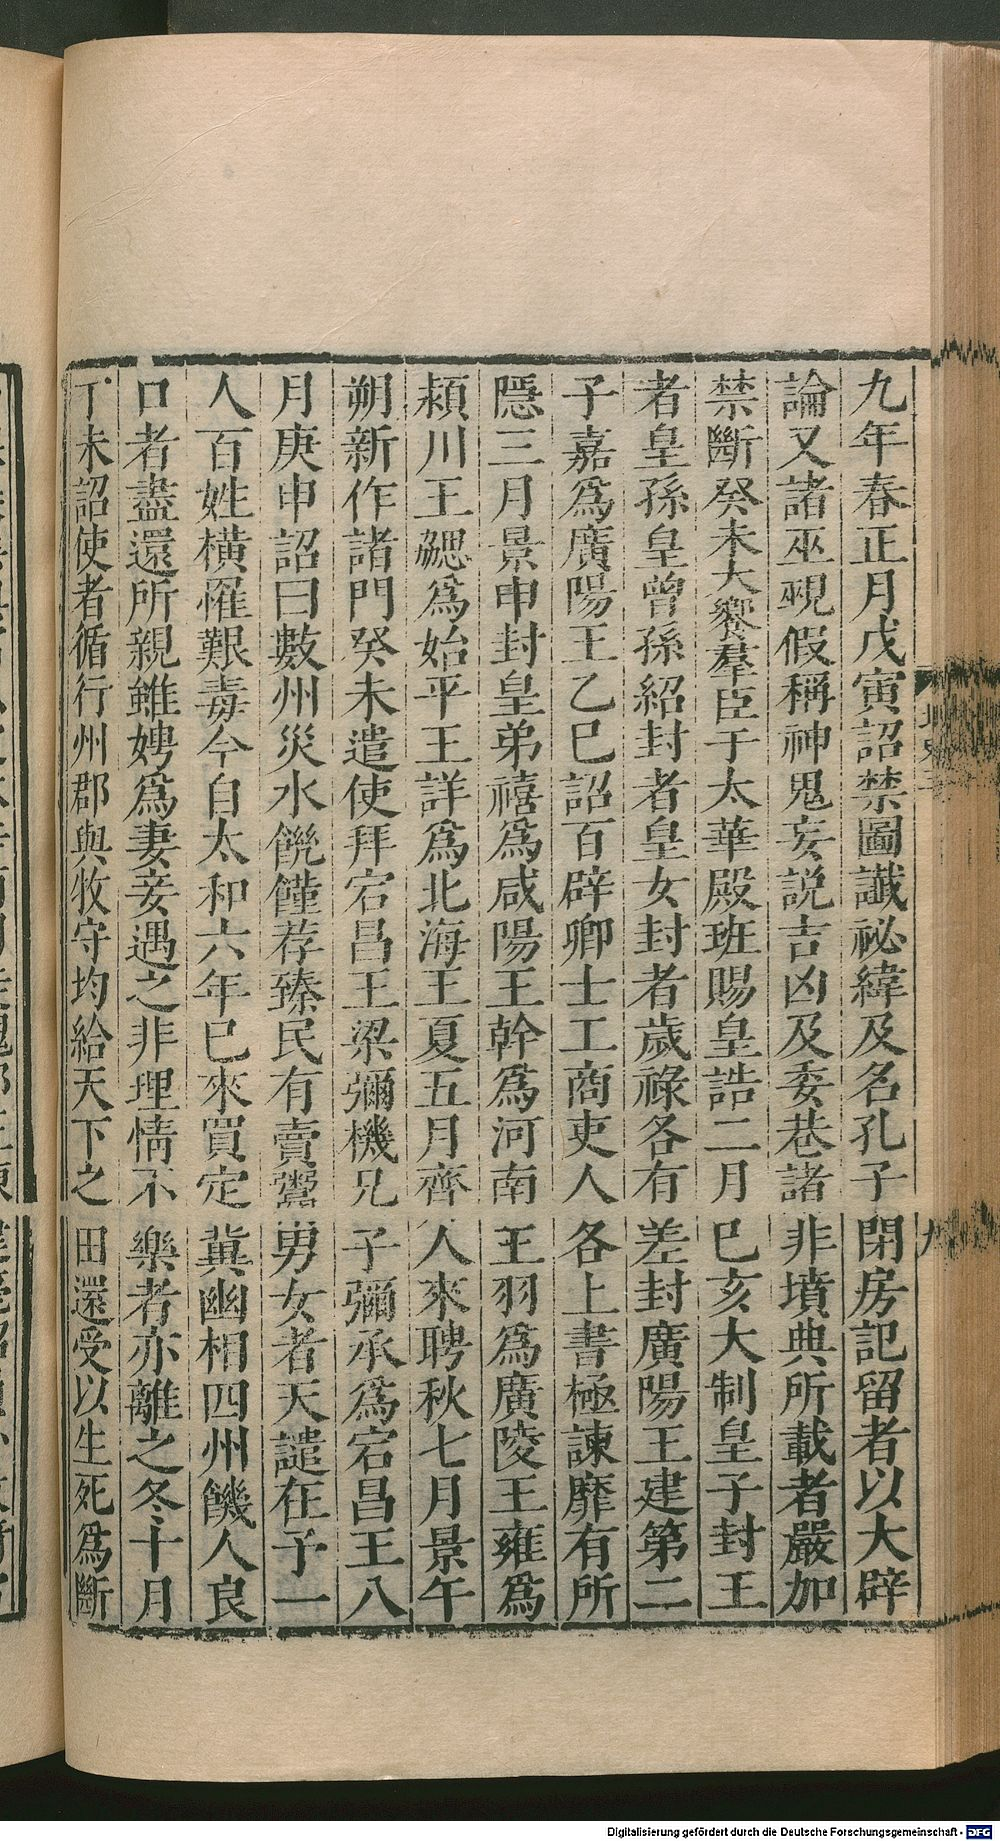 九年春正月戊寅詔禁圖讖祕緯及名孔子閉房記留者以大辟
論又諸巫覡假稱神鬼妄說吉凶及委巷諸非墳典所載者嚴加
禁斷癸未大饗羣臣于太華殿班賜皇誥二月巳亥大制皇子封王
者皇孫皇曾孫紹封者皇女封者歲祿各有差封廣陽王建第二
子嘉爲廣陽王乙巳詔百辟卿士工商吏人各上書極諫靡有所
隱三月景申封皇弟禧爲咸陽王幹爲河南王羽爲廣陵王雍爲
潁川王勰爲始平王詳爲北海王夏五月齊人來聘秋七月景午
朔新作諸門癸未遣使拜宕昌王梁彌機兄子彌承爲宕昌王八
月庚申詔曰數州災水饑饉荐臻民有賣鬻男女者天譴在予一
人百姓橫罹艱毒今自太和六年巳來買定冀幽相四州饑人良
口者盡還所親雖娉爲妻妾遇之非理情不樂者亦離之冬十月
丁未詔使者循行州郡與牧守均給天下之田還受以生死爲斷
Digitalisierung gefördert durch die Deutsche Forschungsgemeinschaft - DFG